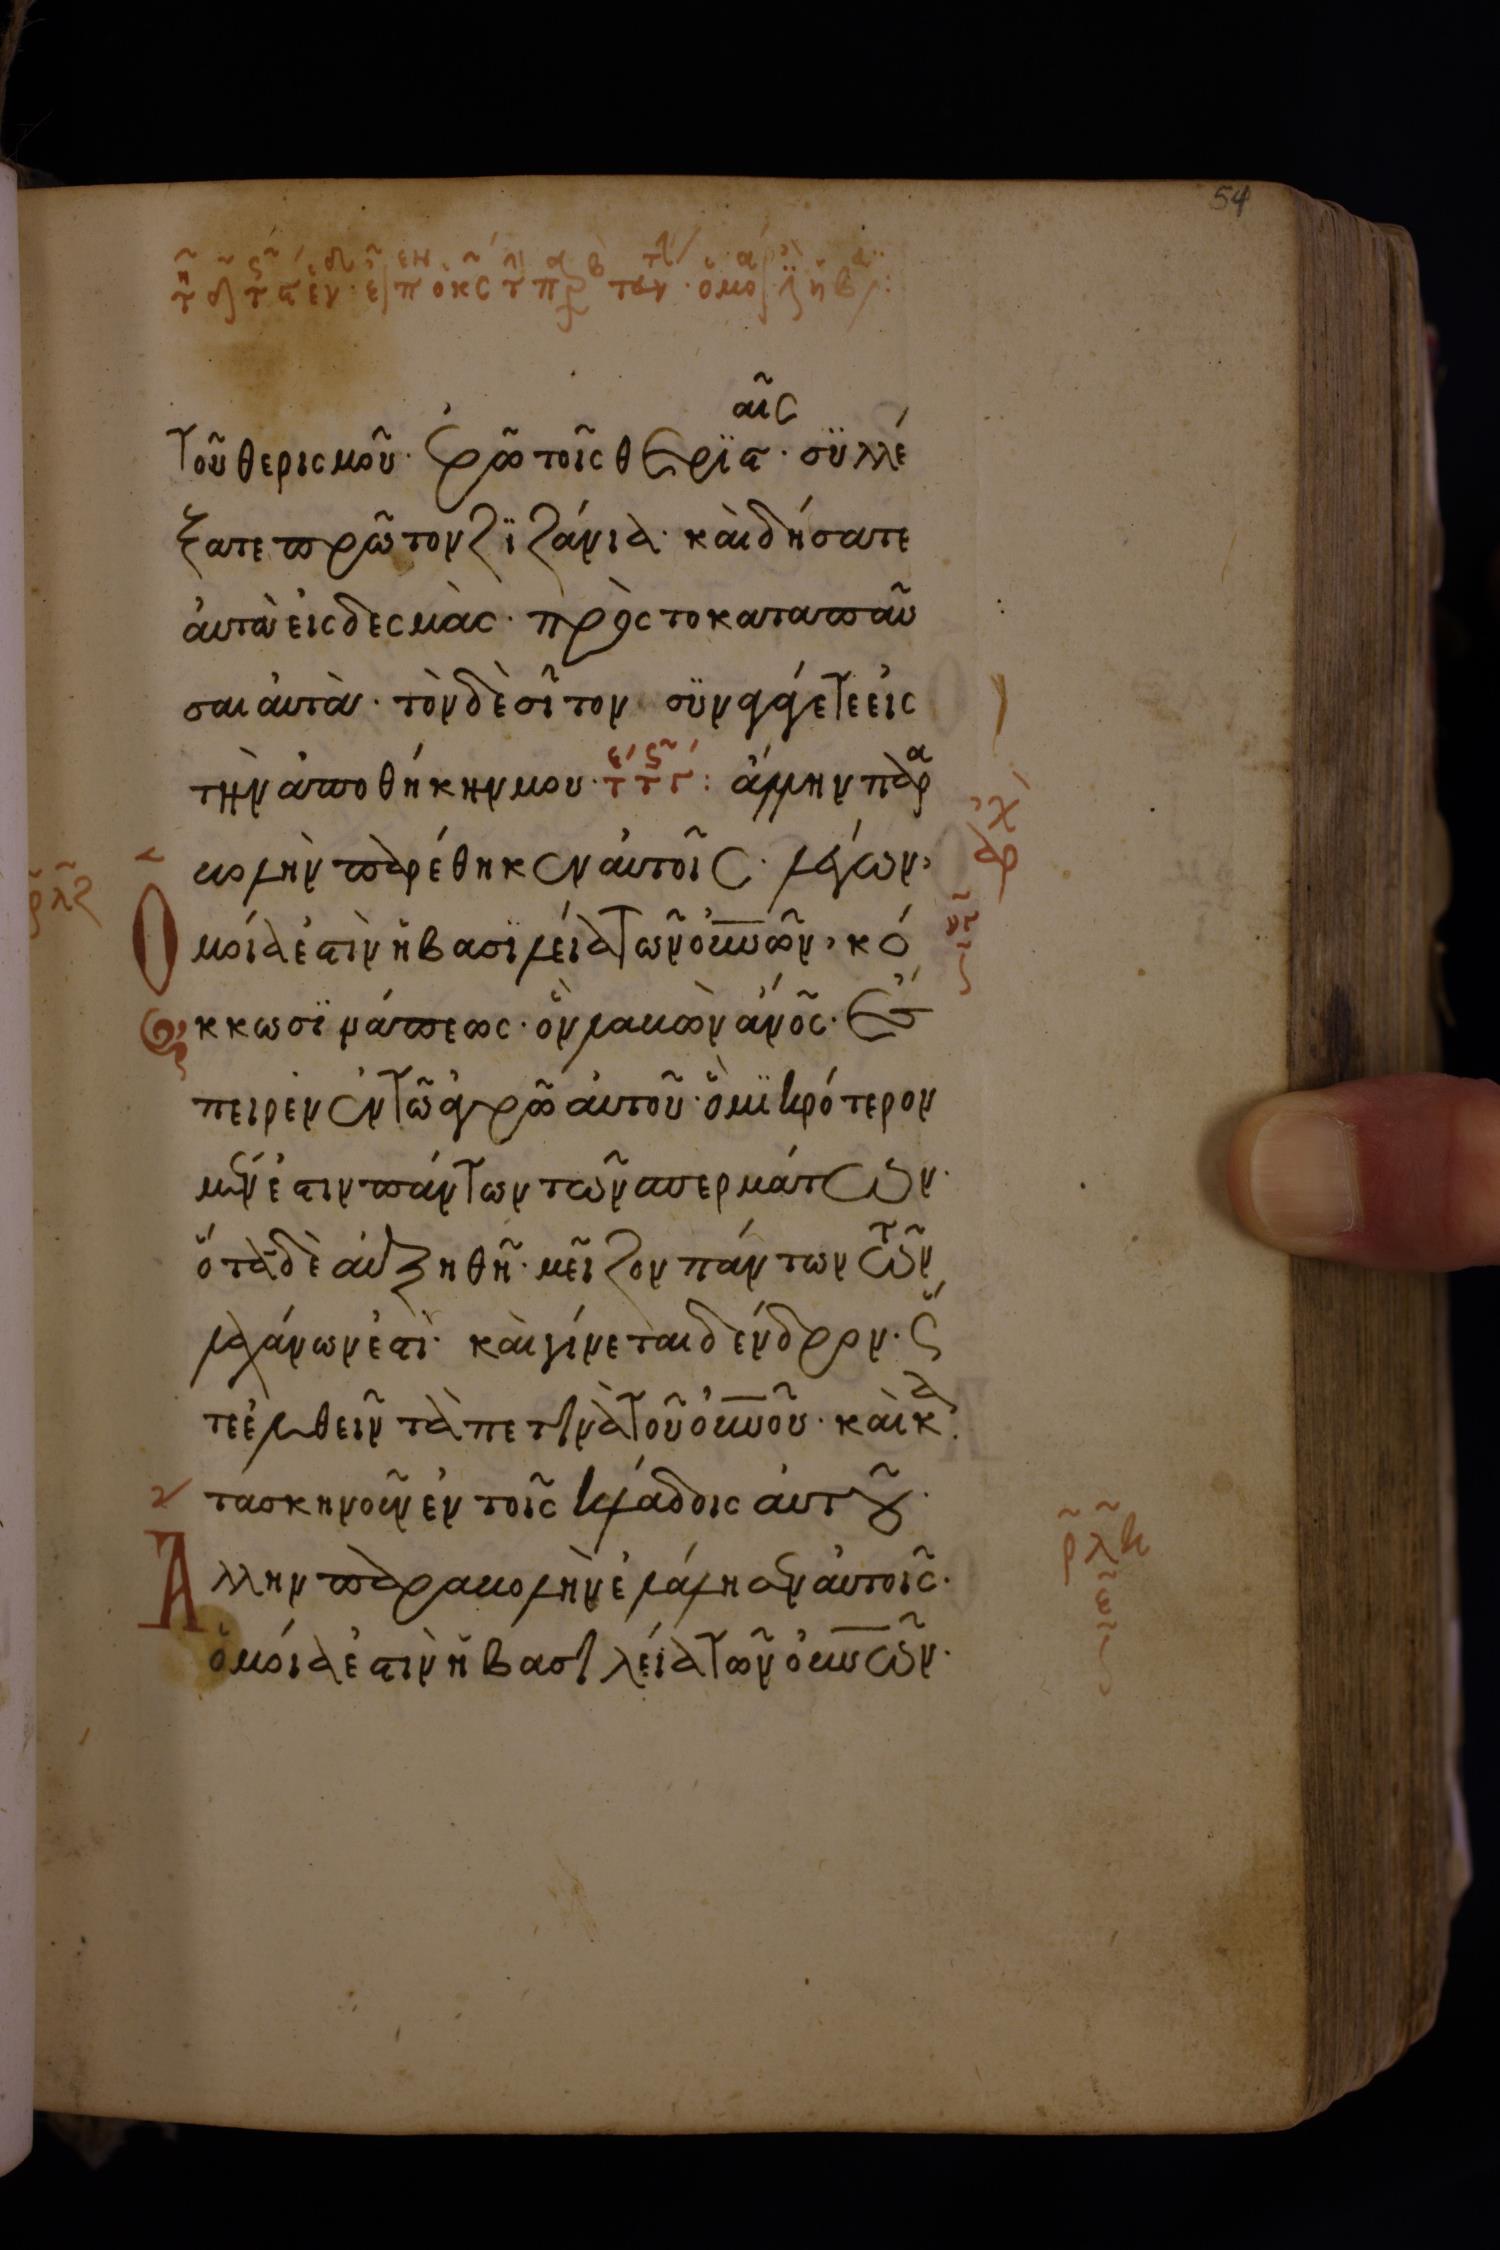 54
τοῦ θερισμοῦ· ἐρῶ τοῖς θερϊσταῖς· σϋλλέ
ξατε πρῶτον ζϊζάνια· καὶ δήσατε
ἀυτὰ εἰς δεσμὰς· πρὸς το κατακαῦ
σαι ἀυτὰ· τὸν δὲ σῖτον σϋναγάγετε εἰς
τὴν ἀποθήκην μου· ἄλλην παρα
βολὴν παρέθηκεν ἀυτοῖς· λέγων,
Ομοία ἐστὶν ἡ βασιλεία τῶν οὐνῶν, κό
κκω σϊνάπεως· ὃν λαβὼν ἄνος· ἔσ
πειρεν ἐν τῶ ἀγρῶ ἀυτοῦ· ὃ μϊκρότερον
μέν ἐστιν πάντων τῶν σπερμάτων·
ὅταν δὲ ἀυξηθῆ· μεῖζον πάντων τῶν
λαχάνων ἐστὶ· καὶ γίνεται δένδρον· ὥς
τε ἐλθεῖν τὰ πετινὰ τοῦ οὐνοῦ· καὶ κα
τασκηνοῦν ἐν τοῖς κλάδοις ἀυτοῦ·
Αλλην παραβολὴν ἐλάλησεν ἀυτοῖς·
ὁμοία ἐστὶν ἡ βασιλεία τῶν οὐνῶν·